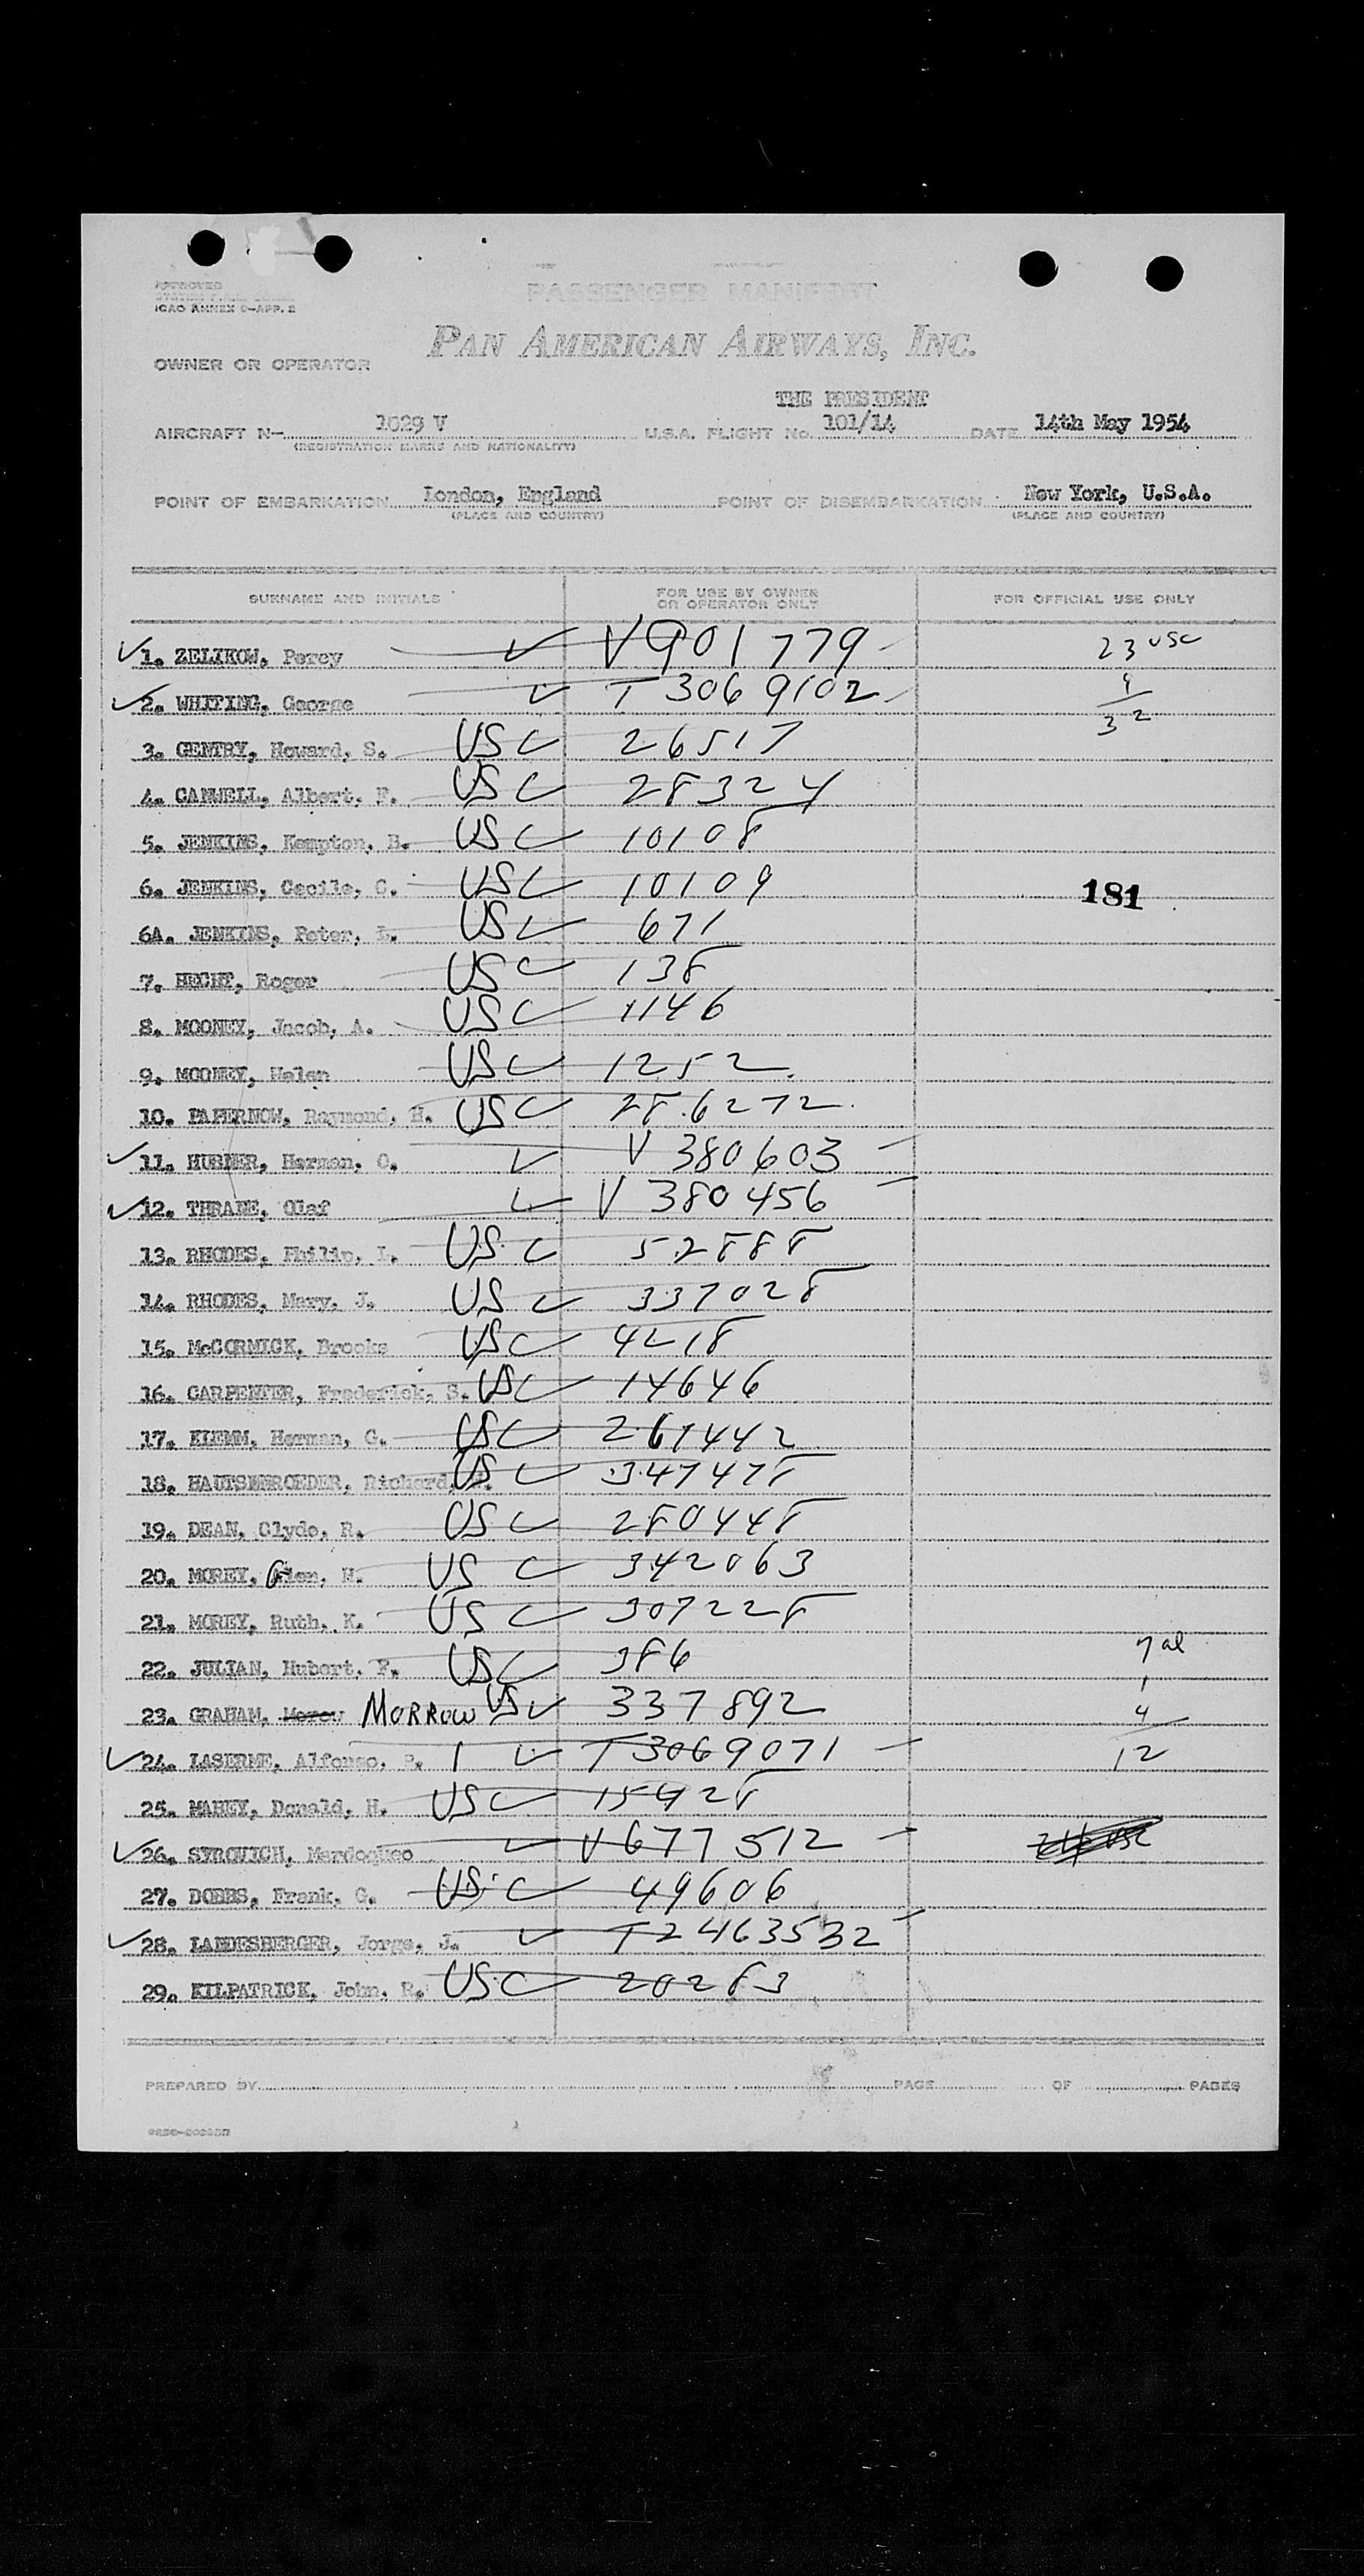 APPROVED
ICAO ANNEX 9-APP. 2
PASSENGER MANIFEST
PAN AMERICAN AIRWAYS, INC.
OWNER OR OPERATOR
THE PRESIDENT
AIRCRAFT N- 1029 V U.S.A. FLIGHT No. 101/14 DATE 14th May 1954
(REGISTRATION MARKS AND NATIONALITY)
POINT OF EMBARKATION London, England POINT OF DISEMBARKATION New York, U.S.A.
(PLACE AND COUNTRY) (PLACE AND COUNTRY)
SURNAME AND INITIALS FOR USE BY OWNER OR OPERATOR ONLY FOR OFFICIAL USE ONLY
1. ZELIKOW, Percy V901779 23 USC
2. WHITING, George T 3069102 9
32
3. GENTRY, Howard, S. USC 26517
4. CANWELL, Albert, F. USC 28324
5. JENKINS, Kempton, B. USC 10108
6. JENKINS, Cecile, C. USC 10109 181
6A. JENKINS, Peter, L. USC 671
7. HECHT, Roger USC 138
8. MOONEY, Jacob, A. USC 1146
9. MOONEY, Helen USC 1252
10. PAPERNOW, Raymond, H. USC 286272
11. HUBNER, Herman, O. V 380603
12. THRANE, Olaf V 380456
13. RHODES, Philip, L. USC 52888
14. RHODES, Mary, J. USC 337028
15. McCORMICK, Brooks USC 4218
16. CARPENTER, Frederick, S. USC 14646
17. KLEMM, Herman, G. USC 261442
18. Richard, USC 347478
19. DEAN, Clyde, R. USC 280448
20. MOREY, Glen, H. USC 342063
21. MOREY, Ruth, K. USC 307228
22. JULIAN, Hubert, F. USC 386 7 al
1
23. GRAHAM, MORROW US 337892 4
24. LASERME, Alfonso, P. 1 T3069071 12
25. MAHEY, Donald, H. USC 15428
26. SYROVICH, Mardoqueo V677512
27. DOBBS, Frank, G. USC 49606
28. LANDESBERGER, Jorge, J. T2463532
29. KILPATRICK, John, R. USC 20283
PREPARED BY PAGE OF PAGES